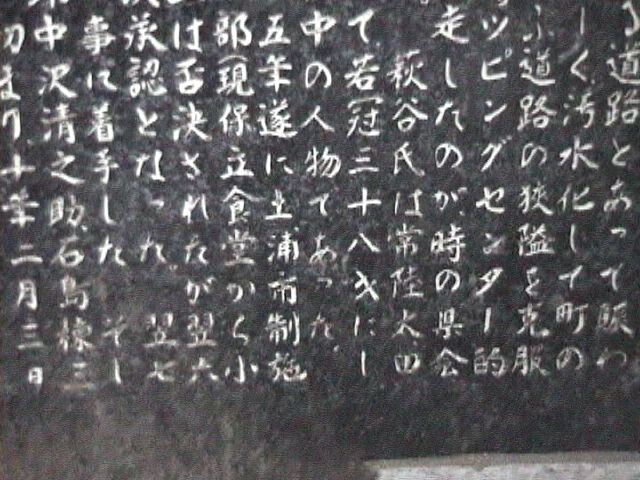 道路とあって賑わ
しく汚水化して町の
道路の狭隘を克服
ッピングセンター的
走したのが時の県会
萩谷氏は常陸太田
て若冠三十八才にし
中の人物であった
五年遂に土浦市制施
部(現保立食堂から小
は否決されたが翌六
承認となった 翌七
事に着手した そし
中沢清之助、石島棟三
十年二月三日